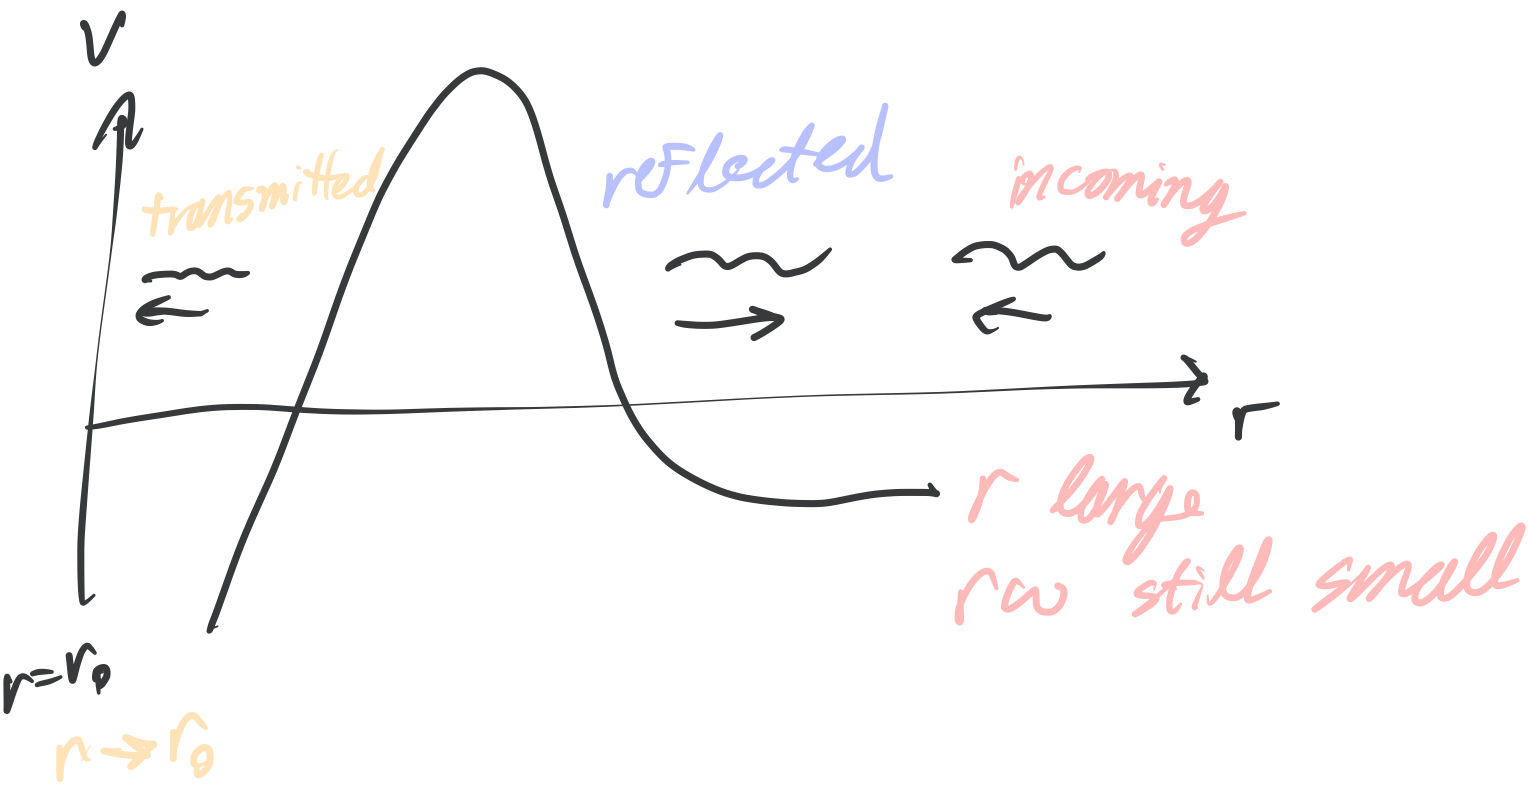 V
transmitted
reflected
incoming
r
r large
rω still small
r=r₀
r → r₀